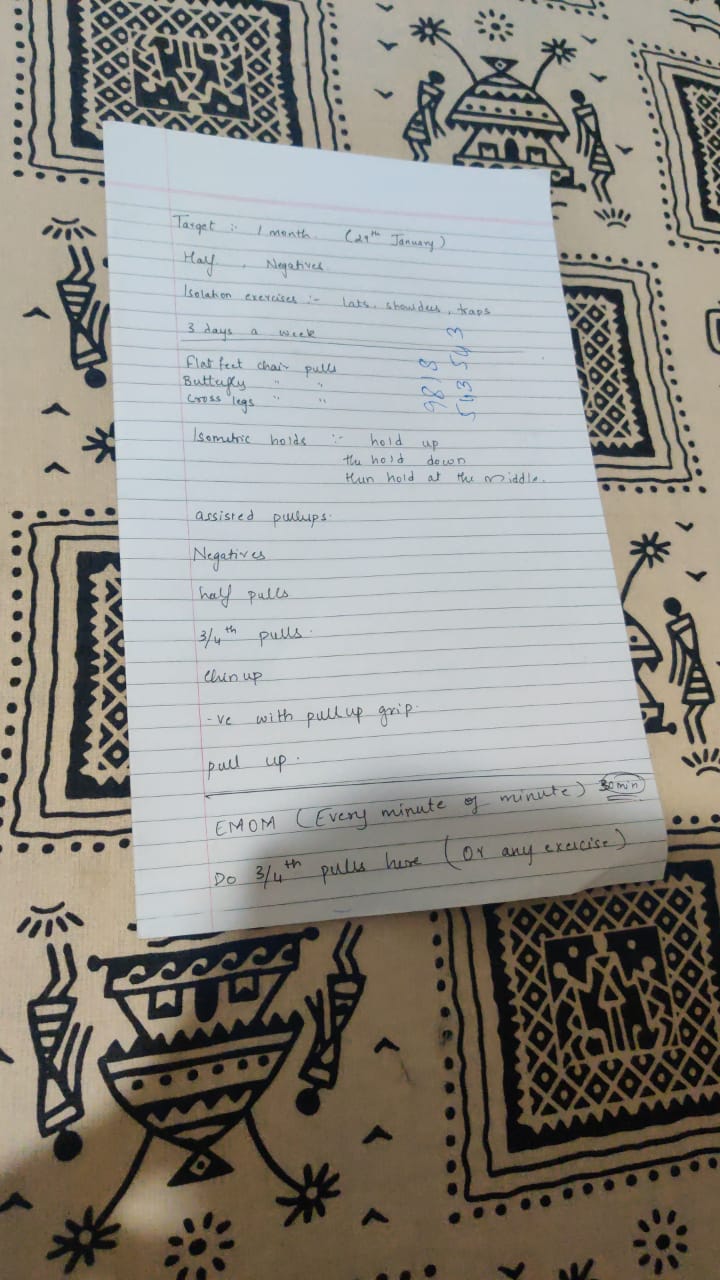 Target :- 1 month. (29th January)
Half, Negatives.
Isolation exercises :- lats, shoulders, traps
3 days a week
Flat feet chair pulls
Butterfly " "
Cross legs " "
9818
543 543
Isometric holds :- hold up
the hold down
then hold at the middle.
assisted pullups.
Negatives
half pulls
3/4th pulls.
chin up
-ve with pull up grip.
pull up.
EMOM (Every minute of minute) 30 min
Do 3/4th pulls here (or any exercise)